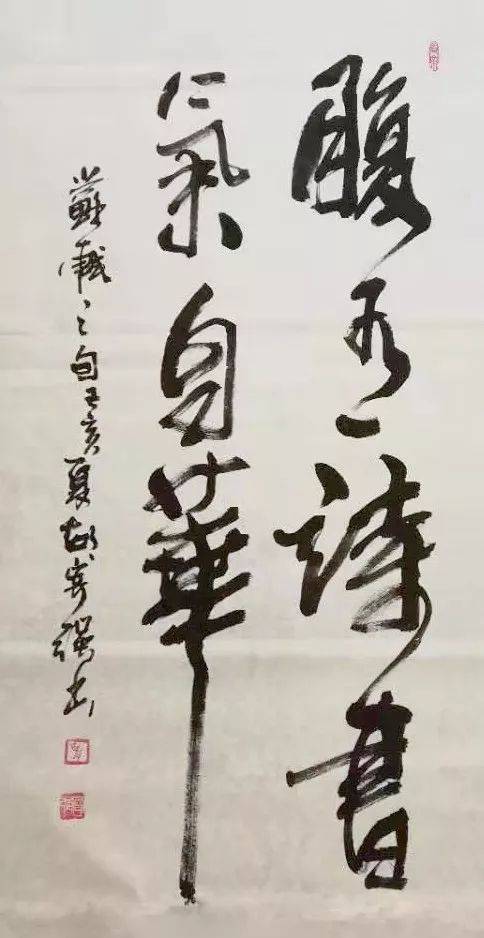 腹有詩書
氣自華
蘇軾之句亥夏書